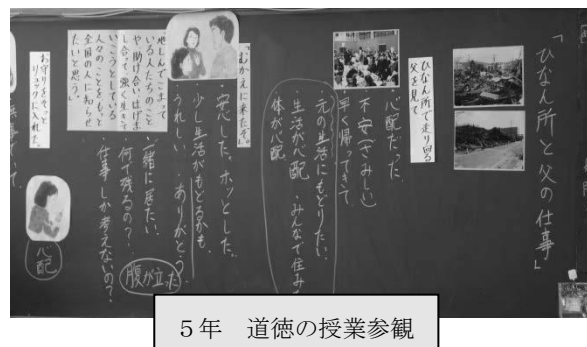 「ひなん所と父の仕事」
ひなん所で走り回る
父を見て
心配だった
不安(さみしい)
早く帰ってきて
元の生活にもどりたい。
生活が心配・みんなで住み
体が心配
「むかえに来たぞ。」
・安心した。ホッとした。
・少し生活がもどるかも。
・うれしい・ありがとう?
・一緒に居たい。
・何で残るの?
・仕事しか考えないの?
腹が立った
いる人たちのこと
や、助け合い、はげま
し合って、強く生きて
いこうとしている
人々のことを、
全国の人に知らせ
たいと思う。
お守りをそっと
リュックに入れた。
心配
5年 道徳の授業参観